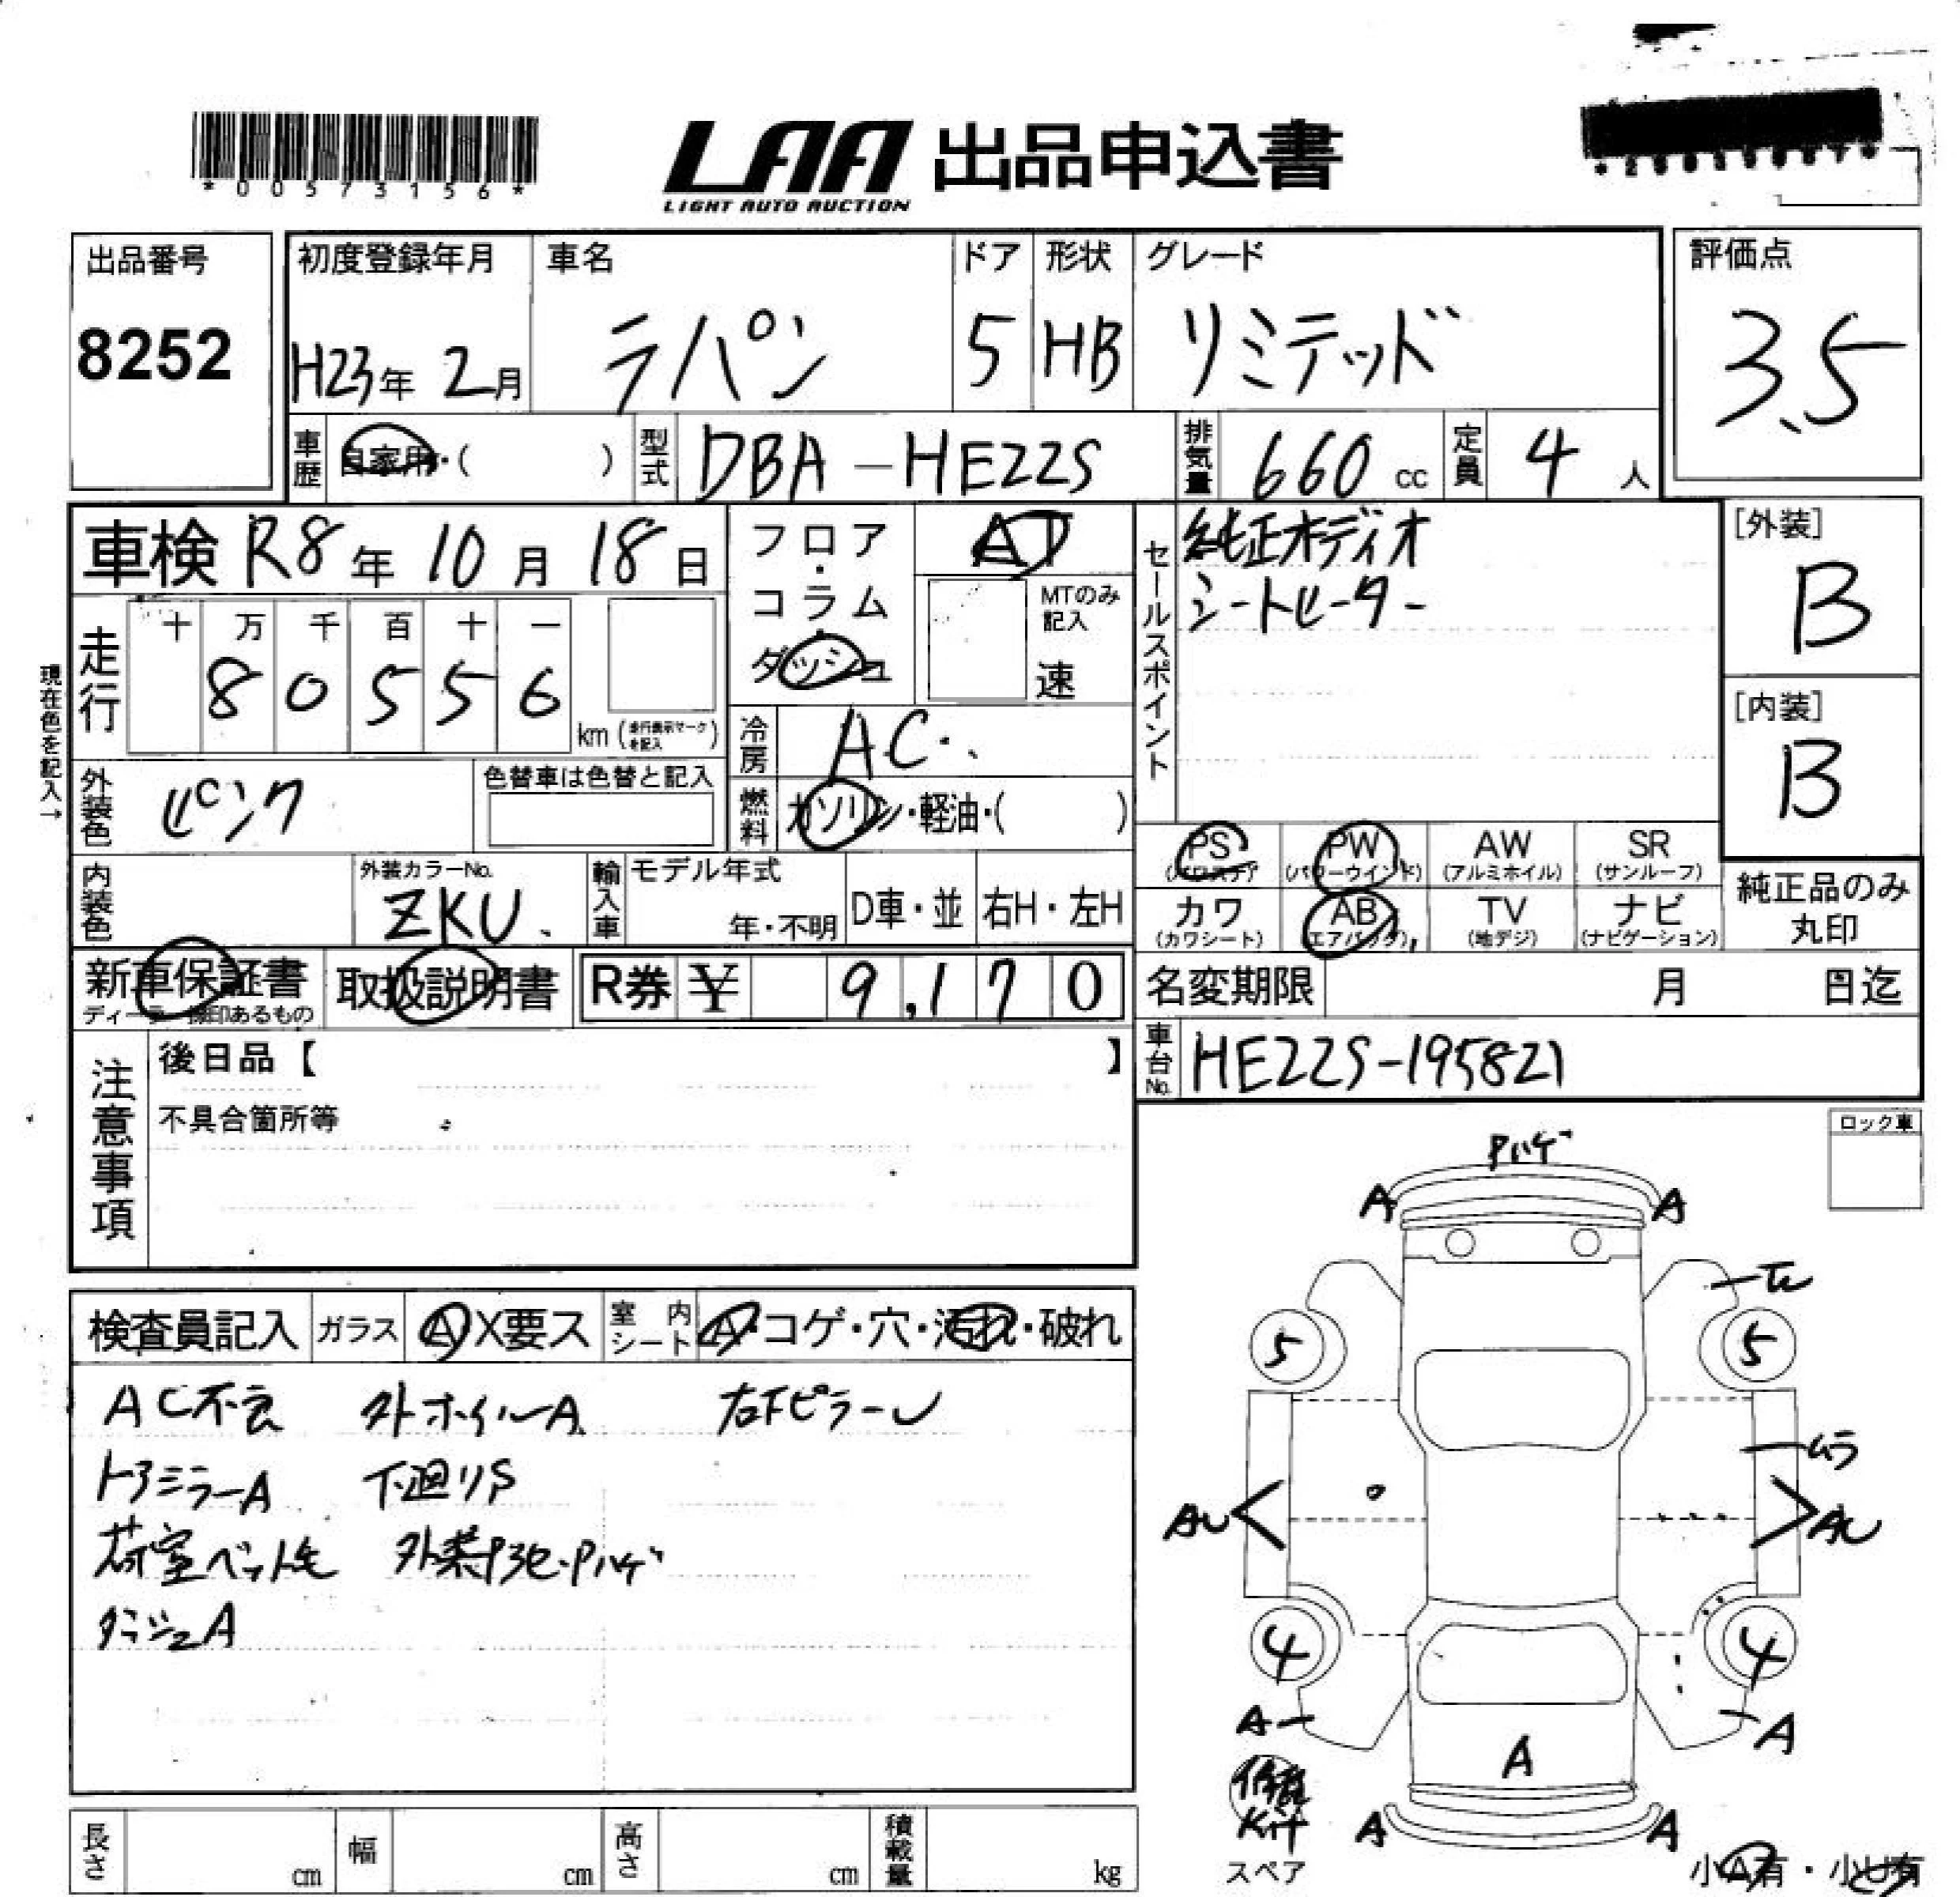 *00573156*
LAA 出品申込書
LIGHT AUTO AUCTION
出品番号
8252
初度登録年月
H23年 2月
車名
ラパン
ドア
5
形状
HB
グレード
リミテッド
評価点
3.5
車歴
自家用・( )
型式
DBA-HE22S
排気量
660 cc
定員
4 人
車検 R8年 10月 18日
走行
十 万 千 百 十 一
8 0 5 5 6
km (走行表示マークを記入)
現在色を記入→
フロア・コラム・ダッシュ
AT
MTのみ記入
速
冷房
AC
燃料
ガソリン・軽油・( )
セールスポイント
純正オーディオ
シートヒーター
[外装]
B
[内装]
B
外装色
ピンク
色替車は色替と記入
内装色
外装カラーNo.
ZKU
輸入車
モデル年式
年・不明
D車・並
右H・左H
PS
(パワステ)
PW
(パワーウインド)
AW
(アルミホイル)
SR
(サンルーフ)
カワ
(カワシート)
AB
(エアバック)
TV
(地デジ)
ナビ
(ナビゲーション)
純正品のみ
丸印
新車保証書
ディーラー捺印あるもの
取扱説明書
R券 ¥ 9,170
名変期限 月 日迄
車台No.
HE22S-195821
注意事項
後日品【 】
不具合箇所等
ロック車
検査員記入
ガラス
A X要ス
室内シート
A・コゲ・穴・汚れ・破れ
AC不良 外ホイルA 右下ピラーU
ドアミラーA 下廻りS
荷室ペット毛 外装P劣化・Pハゲ
ダッシュA
Pハゲ
A A
5 5
ムラ
AU AU
4 4
A A
A
A A
修理
Kit
スペア
小A有・小U有
長さ cm
幅 cm
高さ cm
積載量 kg